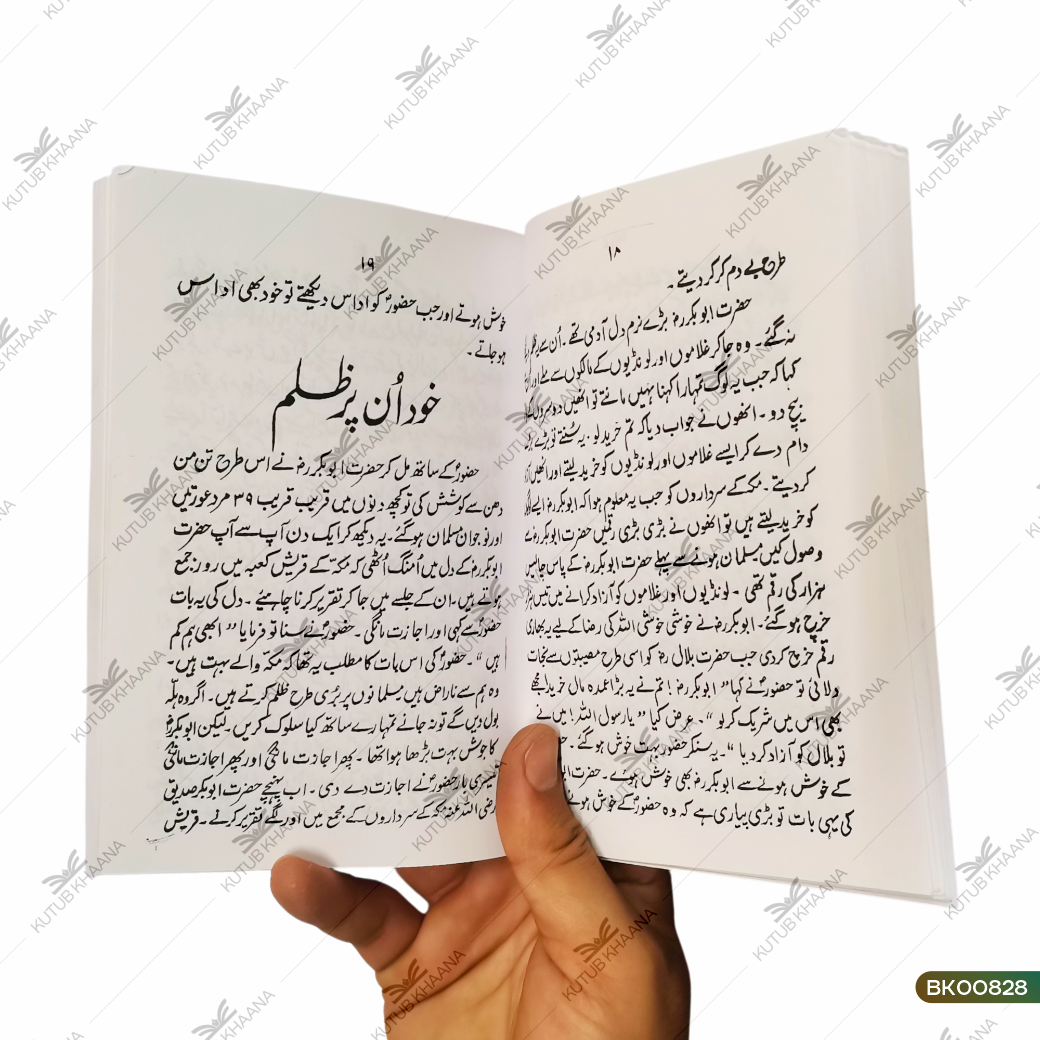 ۱۸
طرح بے دم کر کر دیتے۔
حضرت ابوبکررضؓ بڑے نرم دل آدمی تھے۔ اُن سے یہ ظلم
نہ گئے۔ وہ جا کر غلاموں اور لونڈیوں کے مالکوں سے ملے اور
کہا کہ جب یہ لوگ تمہارا کہنا نہیں مانتے تو انھیں دوسروں کے
بیچ دو۔ انھوں نے جواب دیا کہ تم خرید لو۔ یہ سُنتے تو بڑے
دام دے کر ایسے غلاموں اور لونڈیوں کو خرید لیتے اور انھیں
کر دیتے۔ مکہ کے سرداروں کو جب یہ معلوم ہوا کہ ابوبکررضؓ ایسے
کو خرید لیتے ہیں تو انھوں نے بڑی بڑی رقمیں حضرت ابوبکررضؓ سے
وصول کیں مسلمان ہونے سے پہلے حضرت ابوبکررضؓ کے پاس چالیس
ہزار کی رقم تھی۔ لونڈیوں اور غلاموں کو آزاد کرانے میں تیس
خرچ ہو گئے۔ ابوبکررضؓ نے خوشی خوشی اللہ کی رضا کے لیے یہ بھاری
رقم خرچ کر دی جب حضرت بلال رضؓ کو اسی طرح مصیبتوں سے نجات
دلائی تو حضورؐ نے کہا "ابوبکررضؓ! تم نے یہ بڑا عمدہ مال خریدا مجھے
بھی اس میں شریک کر لو"۔ عرض کیا "یا رسول اللہ! میں نے
تو بلال کو آزاد کر دیا"۔ یہ سنکر حضور بہت خوش ہو گئے۔
کے خوش ہونے سے ابوبکررضؓ بھی خوش ہوئے۔ حضرت
کی یہی بات تو بڑی پیاری ہے کہ وہ حضورؐ کے خوش ہونے
۱۹
خوش ہوتے اور جب حضورؐ کو اداس دیکھتے تو خود بھی اداس
ہو جاتے۔
خود اُن پر ظلم
حضورؐ کے ساتھ مل کر حضرت ابوبکررضؓ نے اس طرح تن من
دھن سے کوشش کی تو کچھ دنوں میں قریب قریب ۳۹ مرد عورتیں
اور نوجوان مسلمان ہو گئے۔ یہ دیکھ کر ایک دن آپ سے آپ حضرت
ابوبکررضؓ کے دل میں اُمنگ اُٹھی کہ مکہ کے قریش کعبہ میں روز جمع
ہوتے ہیں۔ ان کے جلسے میں جا کر تقریر کرنا چاہیئے۔ دل کی یہ بات
حضورؐ سے کہی اور اجازت مانگی۔ حضورؐ نے سنا تو فرمایا "ابھی ہم کم
ہیں"۔ حضورؐ کی اس بات کا مطلب یہ تھا کہ مکہ والے بہت ہیں۔
وہ ہم سے ناراض ہیں مسلمانوں پر بُری طرح ظلم کرتے ہیں۔ اگر وہ ہلّہ
بول دیں گے تو نہ جانے تمہارے ساتھ کیا سلوک کریں۔ لیکن ابوبکررضؓ
کا جوش بہت بڑھا ہوا تھا۔ پھر اجازت مانگی اور پھر اجازت مانگی
تیسری بار حضورؐ نے اجازت دے دی۔ اب پہنچے حضرت ابوبکر صدیق
رضی اللہ عنہ مکہ کے سرداروں کے مجمع میں اور لگے تقریر کرنے۔ قریش
KUTUB KHAANA
BK00828